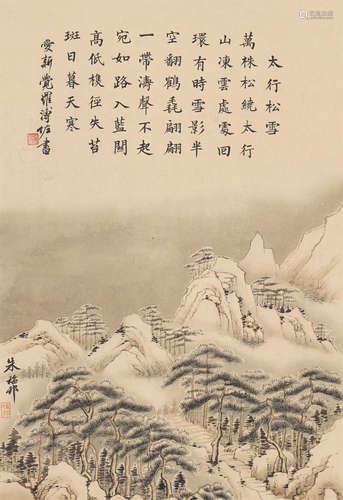 太行松雪
萬株松繞太行
山凍雲處處回
環有時雪影半
空翻鶴氅翩翩
一帶濤聲不起
宛如路入藍關
高低樵徑失苔
斑日暮天寒
愛新覺羅溥佐書
朱